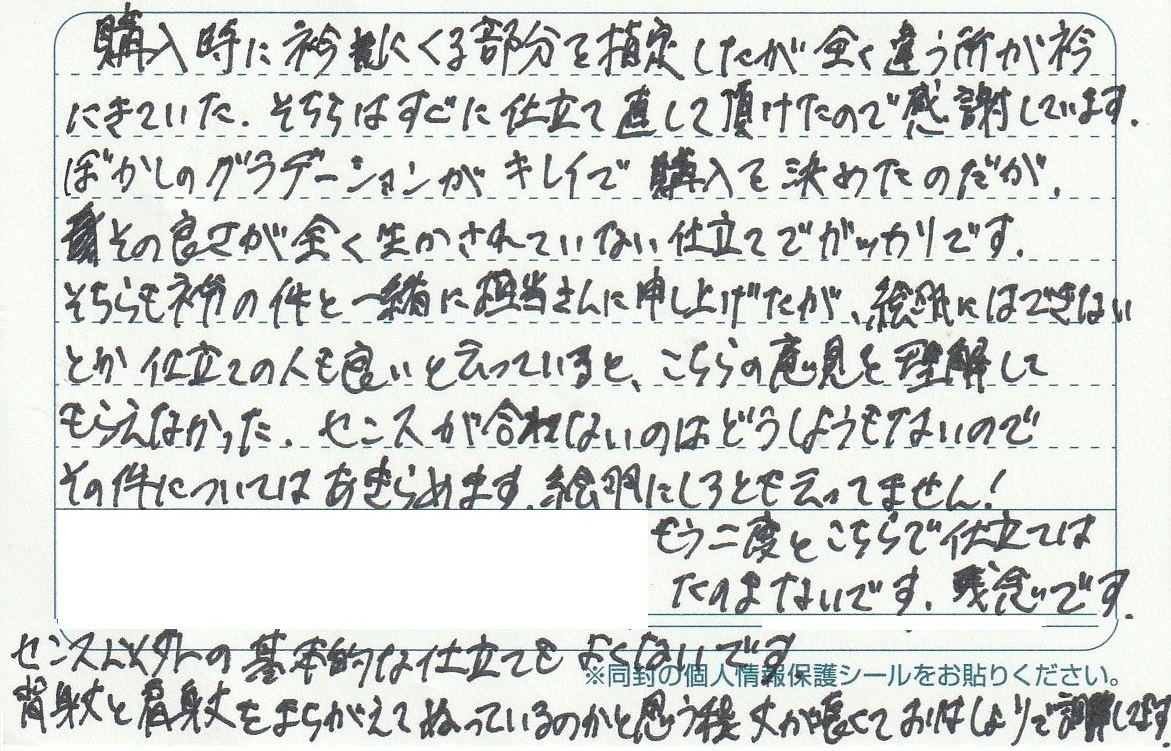 購入時に衿にくる部分を指定したが全く違う所が衿
にきていた。そちらはすぐに仕立て直して頂けたので感謝しています。
ぼかしのグラデーションがキレイで購入を決めたのだが、
その良さが全く生かされていない仕立てでガッカリです。
そちらも衿の件と一緒に担当さんに申し上げたが、絵羽にはできない
とか仕立ての人も良いと云っていると、こちらの意見を理解して
もらえなかった。センスが合わないのはどうしようもないので
その件についてはあきらめます。絵羽にしろとも云ってません!
もう二度とこちらで仕立ては
たのまないです。残念です。
センス以外の基本的な仕立てもよくないです。
※同封の個人情報保護シールをお貼りください。
背身丈と肩身丈をまちがえてぬっているのかと思う程丈が長くておはしょりで調整してます